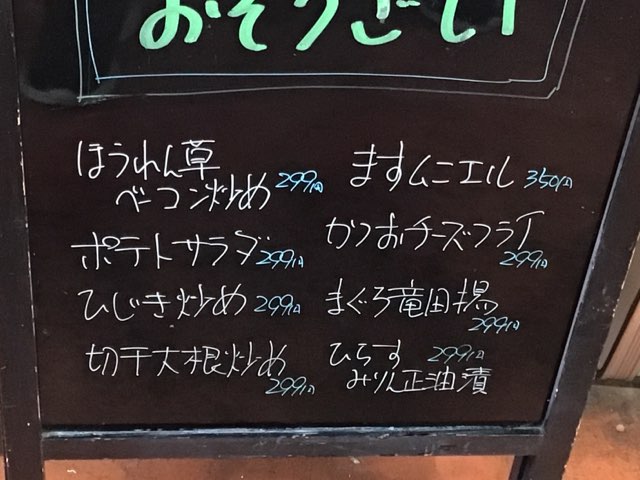 おそうざい
ほうれん草
ベーコン炒め 299円
ポテトサラダ 299円
ひじき炒め 299円
切干大根炒め
299円
ますムニエル 350円
かつおチーズフライ
299円
まぐろ竜田揚
299円
ひらす 299円
みりん正油漬